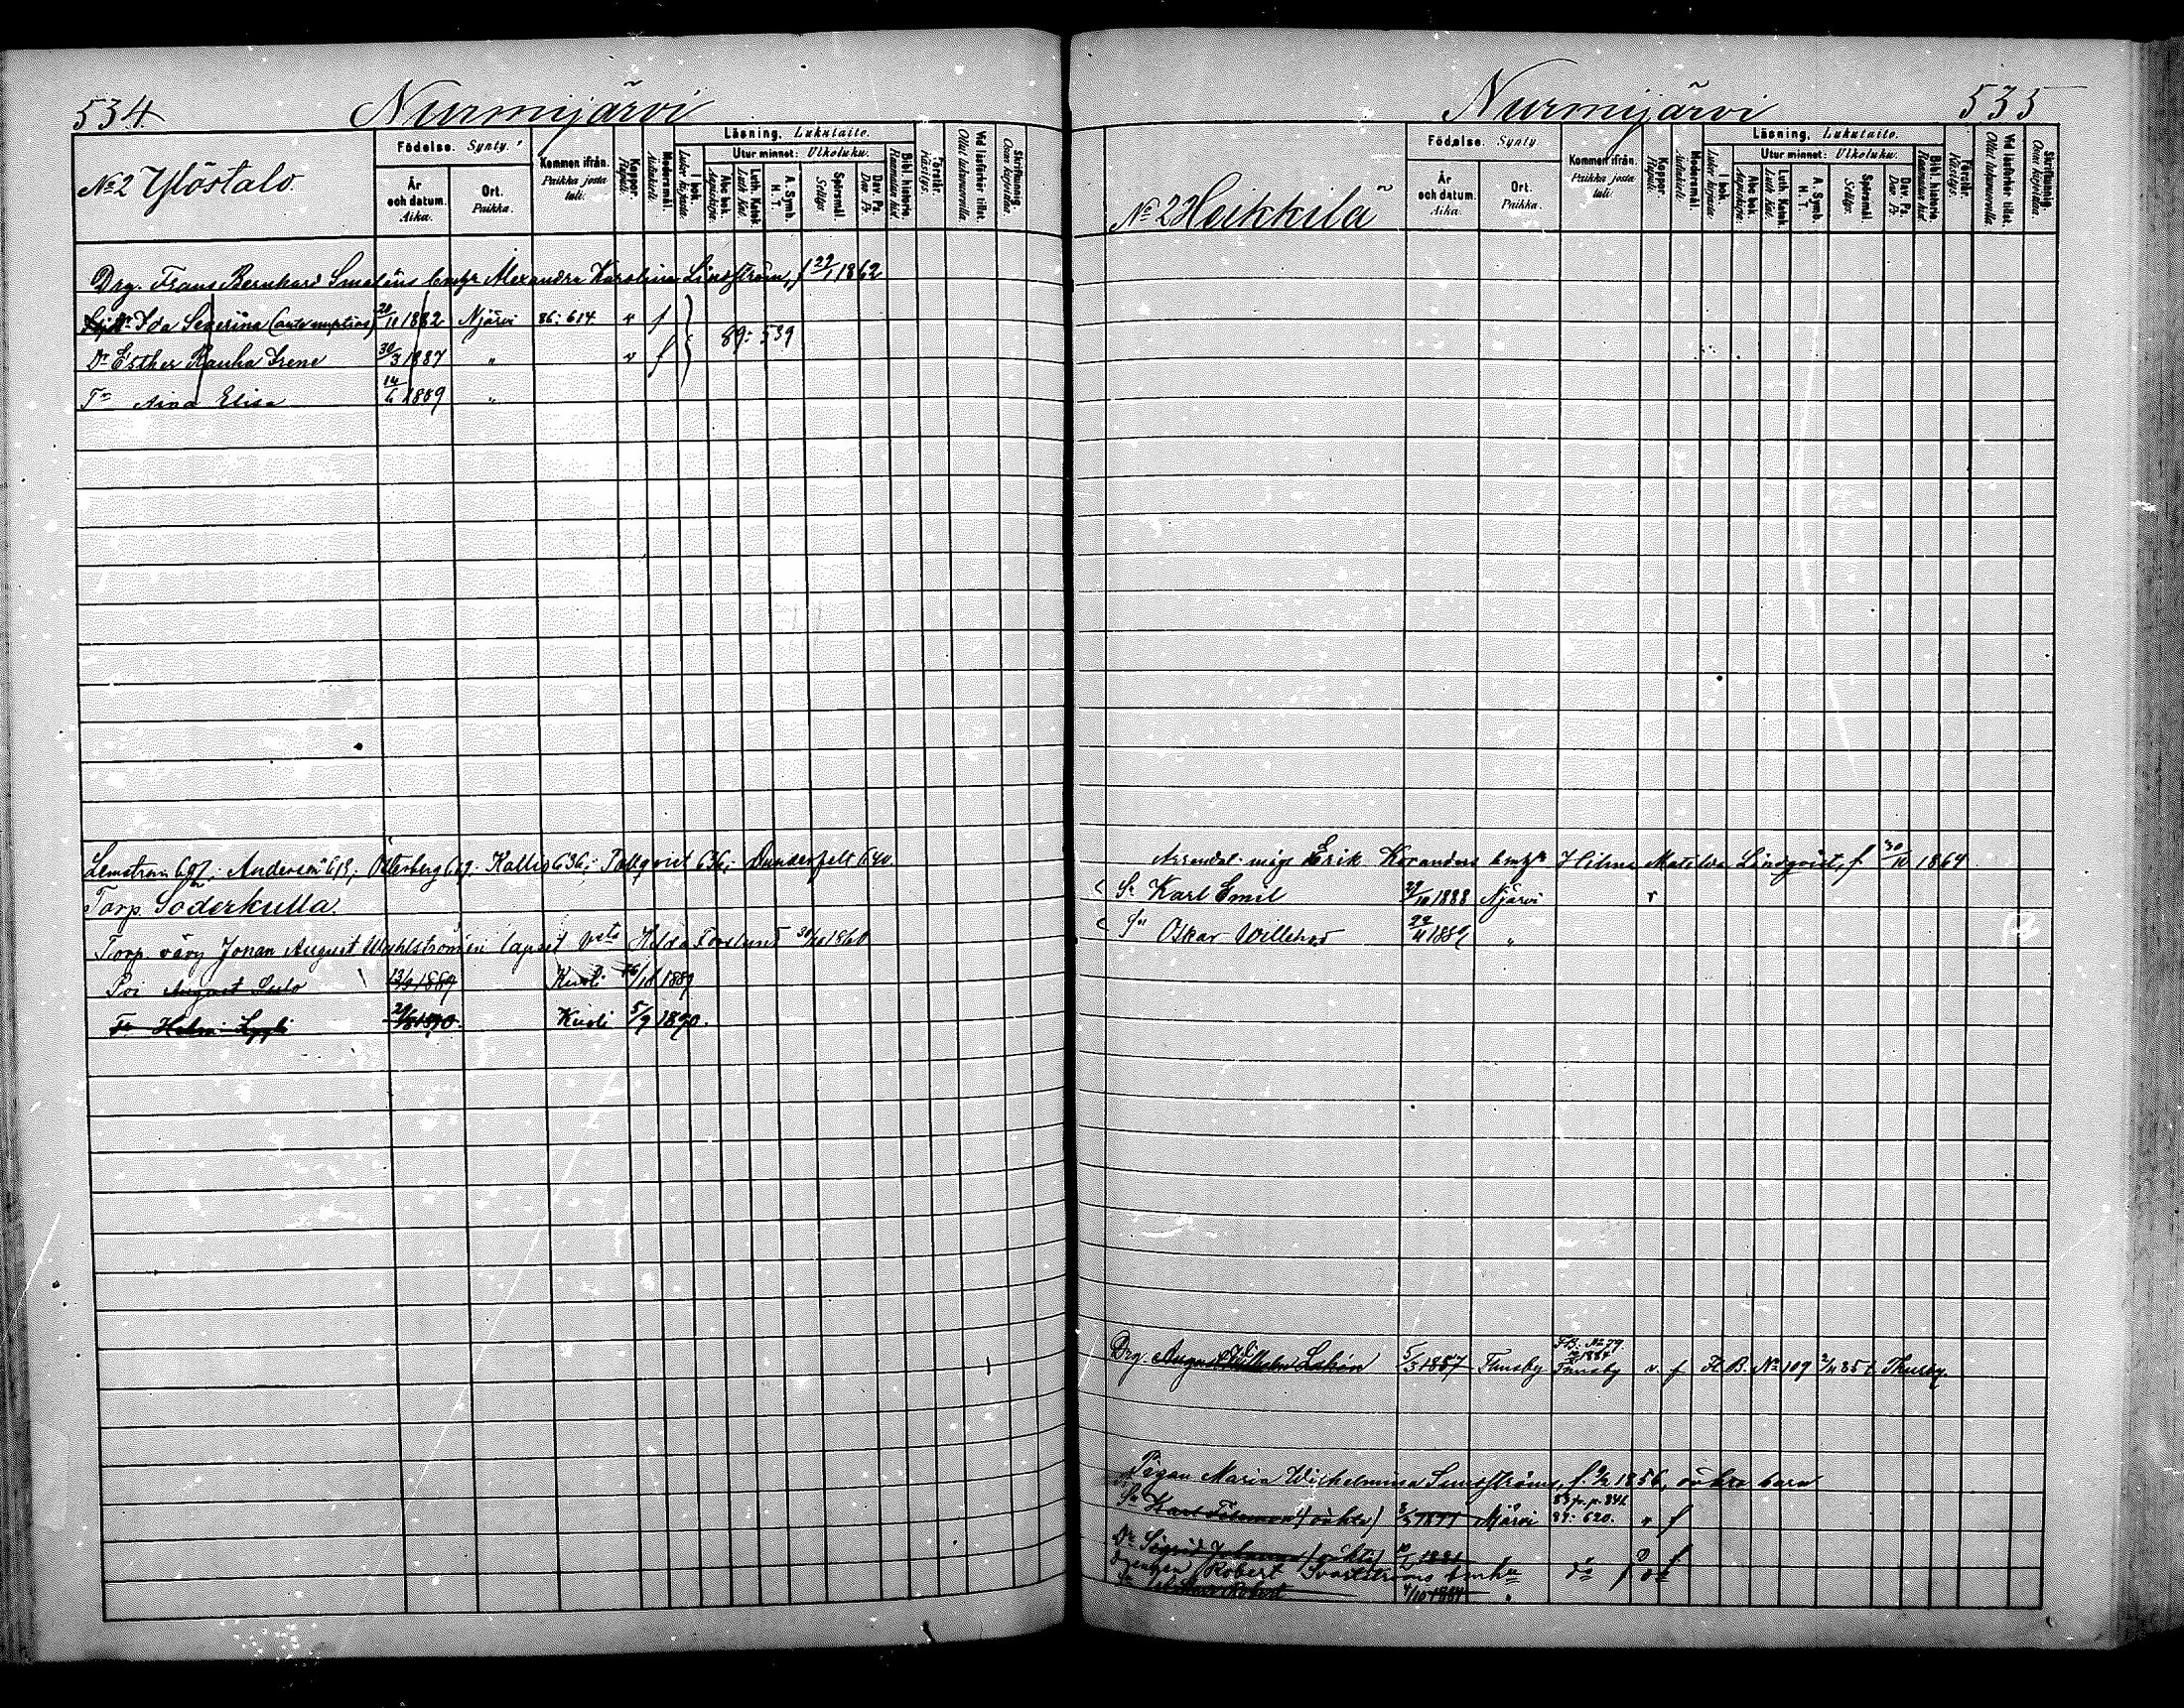 534.
Nurmijärvi
No 2 Ylöstalo.
Födelse. Synty.
År och datum. Aika.
Ort. Paikka.
Kommen ifrån. Paikka josta tuli.
Koppor. Rupuli.
Modersmål. Äidinkieli.
Läsning. Lukutaito.
I bok. Lukee kirjasta.
Utur minnet: Ulkoluku.
Abc bok. Aapiskirja.
Luth. Katek. Luth. Kat.
A. Symb. H. T.
Spörsmål. Selitys.
Dav. Ps. Dav. Ps.
Bibl. historia. Raamatun hist.
Förstår. Käsitys.
Vid läsförhör tillst. Ollut lukuvuorolla.
Skriftkunnig. Osaa kirjoittaa.
Drg. Frans Bernhard Smelius Alexandra Karolina Lindström, f 22/1 1862
Ida Severina (ante nuptias) 20/11 1882 Njärvi 86: 614. v f
89: 539
Dr Esther Rauha Irene 30/3 1887 " v f
Tr Aina Elisa 14/6 1889 "
Lemström 607; Anderson 613; Österberg 619; Kallio 636; Tallqvist 636; Dunderfelt 640
Torp. Söderkulla.
Torp. vävy Johan August Wahlströmin lapset Hilda Forslund 30/10 1860
Poi August Sulo 13/9 1889 Kuoli 26/10 1889
Tr Helmi Lyyli 1890. Kuoli 5/9 1890.
Nurmijärvi
535
No 2 Heikkilä
Födelse. Synty.
År och datum. Aika.
Ort. Paikka.
Kommen ifrån. Paikka josta tuli.
Koppor. Rupuli.
Modersmål. Äidinkieli.
Läsning. Lukutaito.
I bok. Lukee kirjasta.
Utur minnet: Ulkoluku.
Abc bok. Aapiskirja.
Luth. Katek. Luth. Kat.
A. Symb. H. T.
Spörsmål. Selitys.
Dav. Ps. Dav. Ps.
Bibl. historia. Raamatun hist.
Förstår. Käsitys.
Vid läsförhör tillst. Ollut lukuvuorolla.
Skriftkunnig. Osaa kirjoittaa.
Arrendat. mågs Erik Koranders Hilma Matilda Lindqvist, f 30/10 1864
Sn Karl Emil 29/10 1888 Njärvi v
Sn Oskar Willehad 22/11 1889 "
Drg. August Wilhelm 5/3 1857 Thusby Thusby v. f Fl. B. No 109 85 t. Thusby.
Pigan Maria Wilhelmina Sundströms, f. 1856, oäkta barn
Sn Karl Filemon (oäkta) Njärvi 84: 620. v f
Dr Sigrid Johanna (oäkta) 1881 f
Drengen Robert Svartströms
Robert 4/10 1884 "